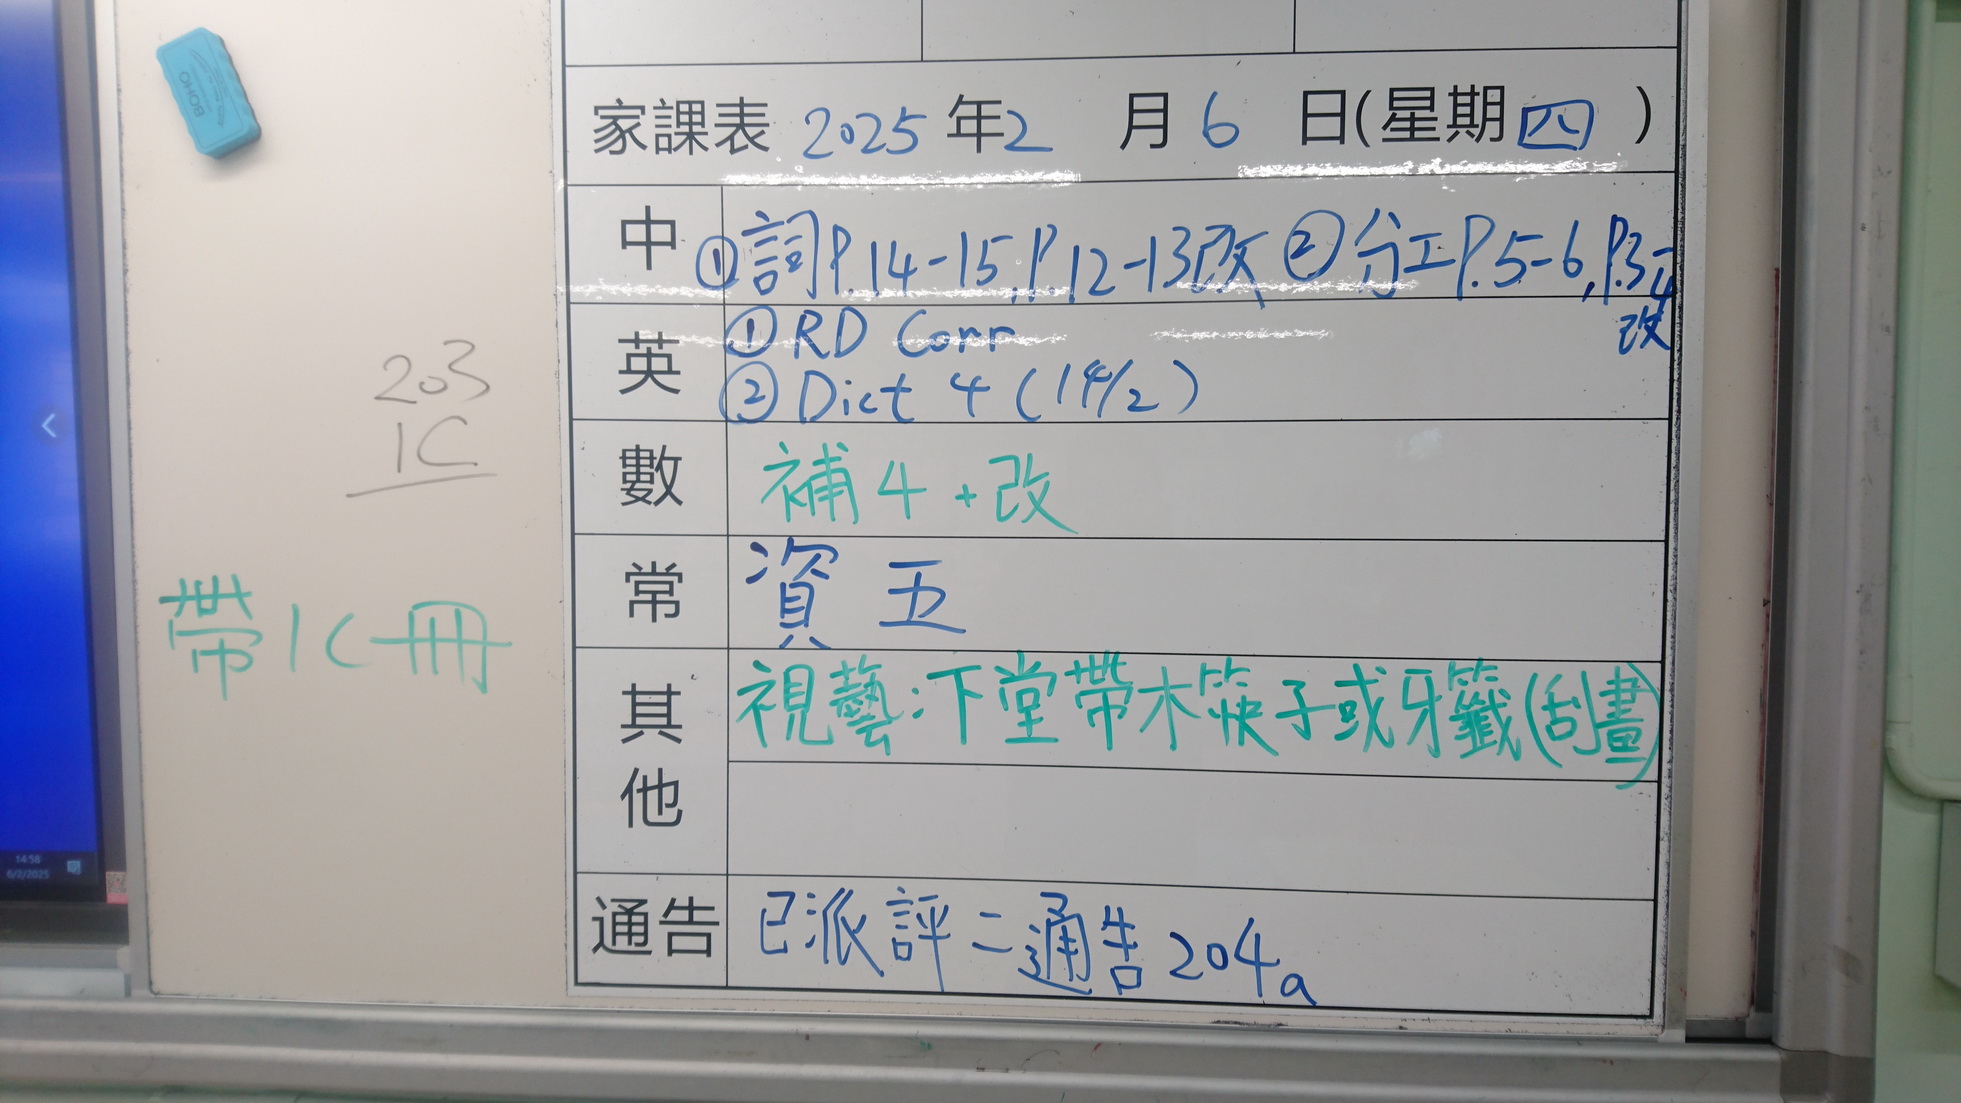 BOHO
家課表 2025 年 2 月 6 日(星期四)
中 ①詞P.14-15,P.12-13改 ②分工P.5-6,P.3-4改
英 ①RD Corr
②Dict 4 (14/2)
數 補4+改
常 資五
其他 視藝:下堂帶木筷子或牙籤(刮畫)
通告 已派評二通告204a
203
1C
帶1C冊
14:58
6/2/2025